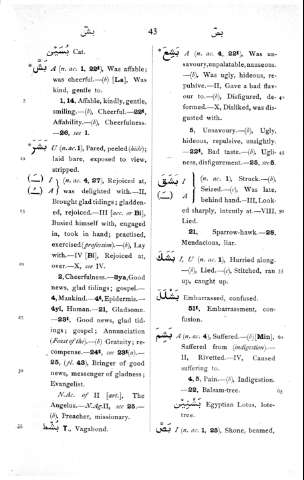 بسّ
43
بشق
بُسَّيْن Cat.
بَشَّ A (n. ac. 1, 22t), Was affable;
was cheerful.—(b) [La], Was
kind, gentle to.
1, 14, Affable, kindly, gentle,
smiling.—(b), Cheerful.—22t,
Affability.—(b), Cheerfulness.
—26, see 1.
بَشَرَ U (n. ac. 1), Pared, peeled (hide);
laid bare, exposed to view,
stripped.
I (n. ac. 4, 27), Rejoiced at,
A was delighted with.—II,
Brought glad tidings; gladden-
ed, rejoiced.—III [acc. or Bi],
Busied himself with, engaged
in, took in hand; practised,
exercised (profession).—(b), Lay
with.—IV [Bi], Rejoiced at,
over.—X, see IV.
2, Cheerfulness.—3ya, Good
news, glad tidings; gospel.—
4, Mankind.—4t, Epidermis.—
4yi, Human.—21, Gladsome.
—23t, Good news, glad tid-
ings; gospel; Annunciation
(Feast of the).—(b) Gratuity; re-
compense.—24t, see 23t(a).—
25, (pl. 43), Bringer of good
news, messenger of gladness;
Evangelist.
N.Ac. of II [art.], The
Angelus.—N.Ag. II, see 25.—
(b), Preacher, missionary.
T., Vagabond.
بَشِعَ A (n. ac. 4, 22t), Was un-
savoury, unpalatable, nauseous.
—(b), Was ugly, hideous, re-
pulsive.—II, Gave a bad flav-
our to.—(b), Disfigured, de-
formed.—X, Disliked, was dis-
gusted with.
5, Unsavoury.—(b), Ugly,
hideous, repulsive, unsightly.
—22t, Bad taste.—(b), Ugli-
ness, disfigurement.—25, see 5.
بَشَقَ I (n. ac. 1), Struck.—(b),
Seized.—(c), Was late,
A behind hand.—III, Look-
ed sharply, intently at.—VIII,
Lied.
21, Sparrow-hawk.—28,
Mendacious, liar.
بَشَكَ I, U (n. ac. 1), Hurried along.
—(b), Lied.—(c), Stitched, ran
up, caught up.
Embarrassed, confused.
51t, Embarrassment, con-
fusion.
بَشِمَ A (n. ac. 4), Suffered.—(b) [Min],
Suffered from (indigestion).—
II, Rivetted.—IV, Caused
suffering to.
4, 5, Pain.—(b), Indigestion.
—22, Balsam-tree.
Egyptian Lotus, lote-
tree.
بَصَّ I (n. ac. 1, 25), Shone, beamed,